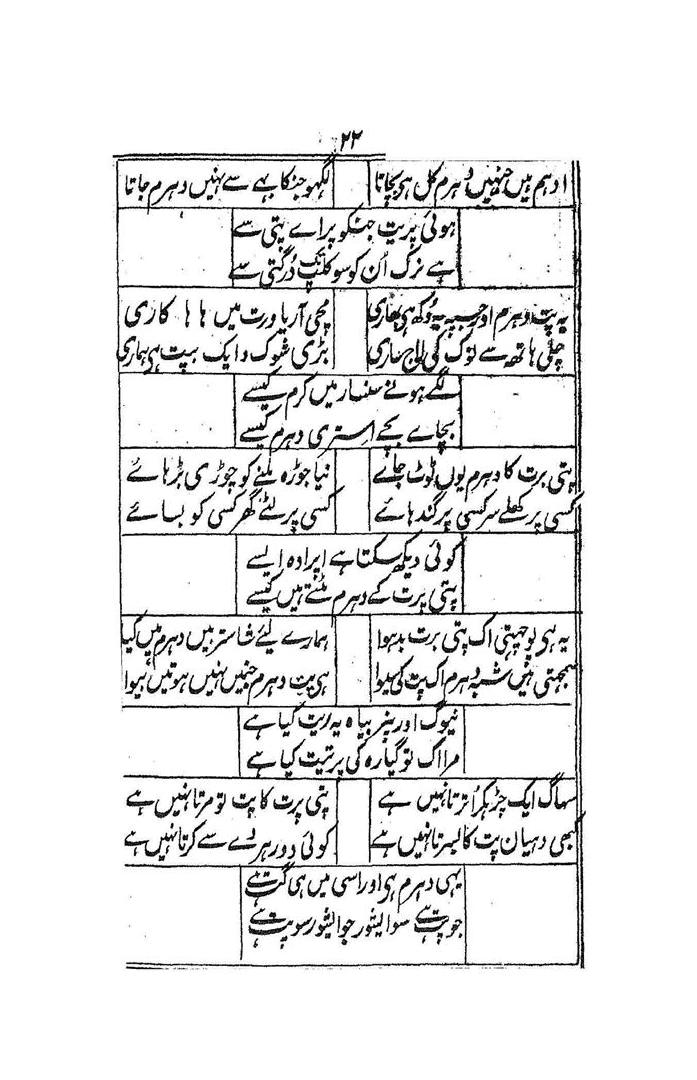 ۲۲
ادہم ہیں جنہیں دہرم کل ہی بچاتا لگہو جنکا ہے سے نہیں دہرم جاتا
ہوئی پریت جنکو پراے پتی سے
ہے نرک اُن کو سو کلپ تک دُرگتی سے
یہ پت دہرم اور جسپہ یہ دُکھ ہی بھاری مچی آریا ورت میں ہا ہا کاری
چلی ہاتھ سے لوک کی لاج ساری بڑی شوک دایک بپت ہی ہماری
لگے ہونے سنسار میں کرم کیسے
بچاے بچے استری دہرم کیسے
پتی برت کا دہرم یوں ٹوٹ جاے نیا جوڑہ ملنے کو چوڑی بڑہائے
کسی پر کھلے سر کسی پر گندہائے کسی پر لٹے گھر کسی کو بسائے
کوئی دیکھ سکتا ہے اپرادہ ایسے
پتی پرت کے دہرم مٹتے ہیں کیسے
یہ ہی پوجہتی اک پتی برت بدہوا ہمارے لیئے شاستر ہیں دہرم میں کیا
سمجھتی ہیں شبہ دہرم اک پت کی سیوا ہی پت دہرم جنہیں نہیں ہوتیں بیوا
نیوگ اور پنر بیاہ یہ ریت کیا ہے
مرا اک تو گیارہ کی پرتیت کیا ہے
سہاگ ایک چڑہکر اُترتا نہیں ہے پتی پرت کا پت تو مرتا نہیں ہے
کبھی دہیان پت کا بسرتا نہیں ہے کوئی دور ہردے سے کرتا نہیں ہے
یہی دہرم ہی اور اسی میں ہی گت ہے
جو پت ہے سو ایشور جو ایشور سو پت ہے